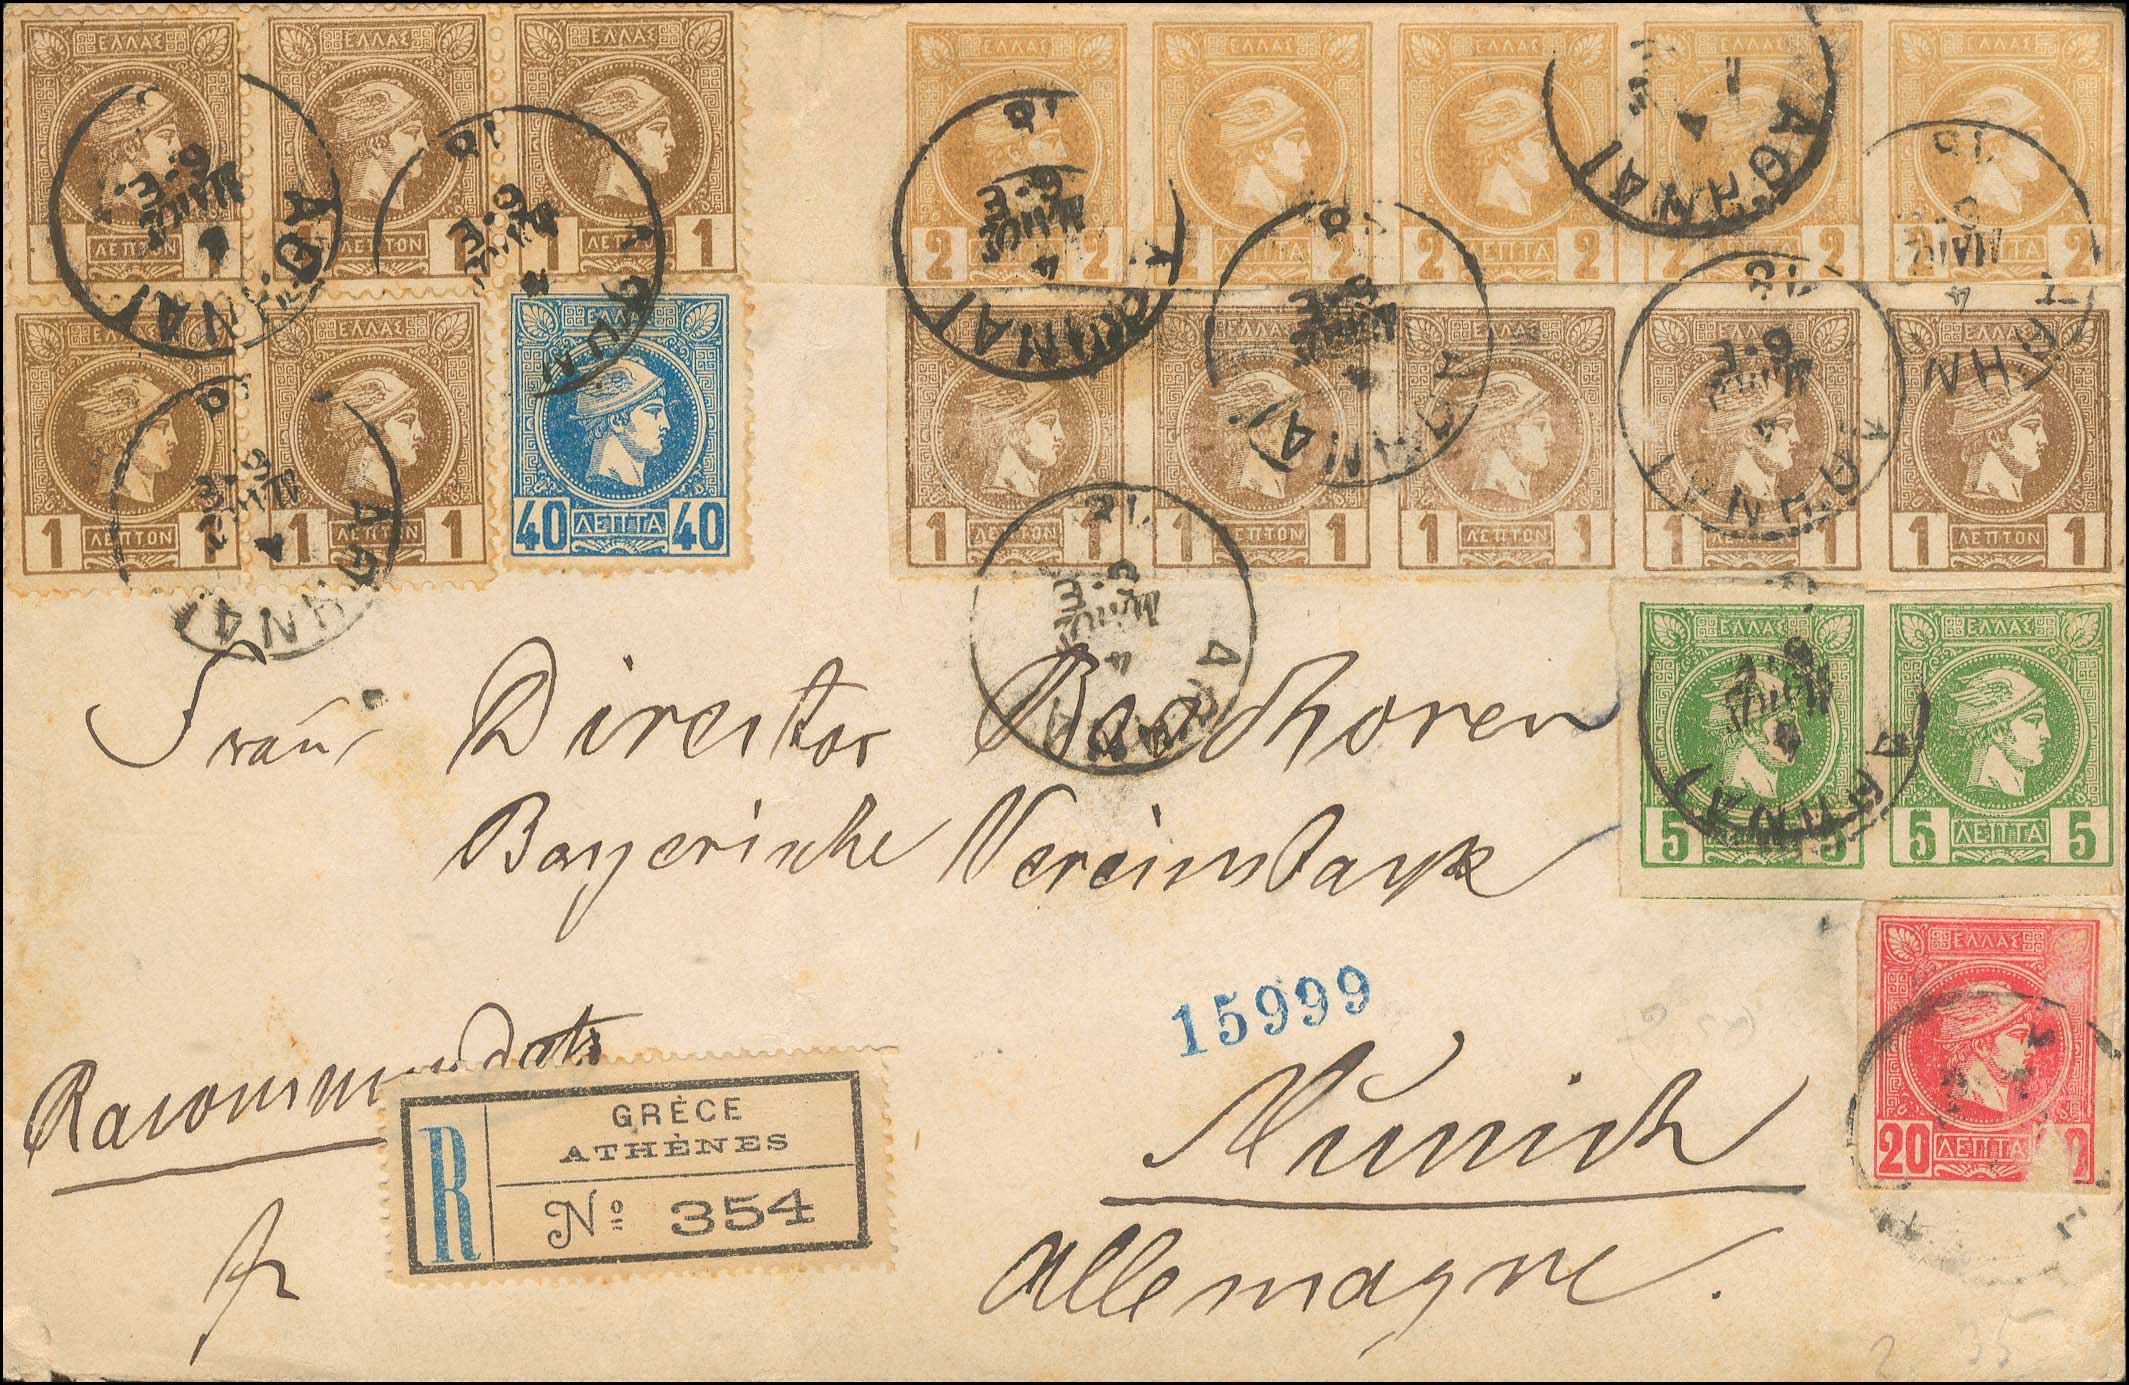 ΕΛΛΑΣ ΕΛΛΑΣ ΕΛΛΑΣ
1 ΛΕΠΤΟΝ 1 ΛΕΠΤΟΝ 1 1 ΛΕΠΤΟΝ 1
ΕΛΛΑΣ ΕΛΛΑΣ ΕΛΛΑΣ
1 ΛΕΠΤΟΝ 1 ΛΕΠΤΟΝ 1 40 ΛΕΠΤΑ 40
ΕΛΛΑΣ ΕΛΛΑΣ ΕΛΛΑΣ ΕΛΛΑΣ ΕΛΛΑΣ
2 ΛΕΠΤΑ 2 2 ΛΕΠΤΑ 2 2 ΛΕΠΤΑ 2 2 ΛΕΠΤΑ 2 2 ΛΕΠΤΑ 2
ΕΛΛΑΣ ΕΛΛΑΣ ΕΛΛΑΣ ΕΛΛΑΣ ΕΛΛΑΣ
1 ΛΕΠΤΟΝ 1 1 ΛΕΠΤΟΝ 1 1 ΛΕΠΤΟΝ 1 1 ΛΕΠΤΟΝ 1 1 ΛΕΠΤΟΝ 1
ΑΘΗΝΑΙ
ΕΛΛΑΣ ΕΛΛΑΣ
5 ΛΕΠΤΑ 5 5 ΛΕΠΤΑ 5
ΕΛΛΑΣ
20 ΛΕΠΤΑ
Frau Director
Bayerische Vereinsbank
15999
Munich
Allemagne.
R
GRÈCE
ATHÈNES
Nº 354